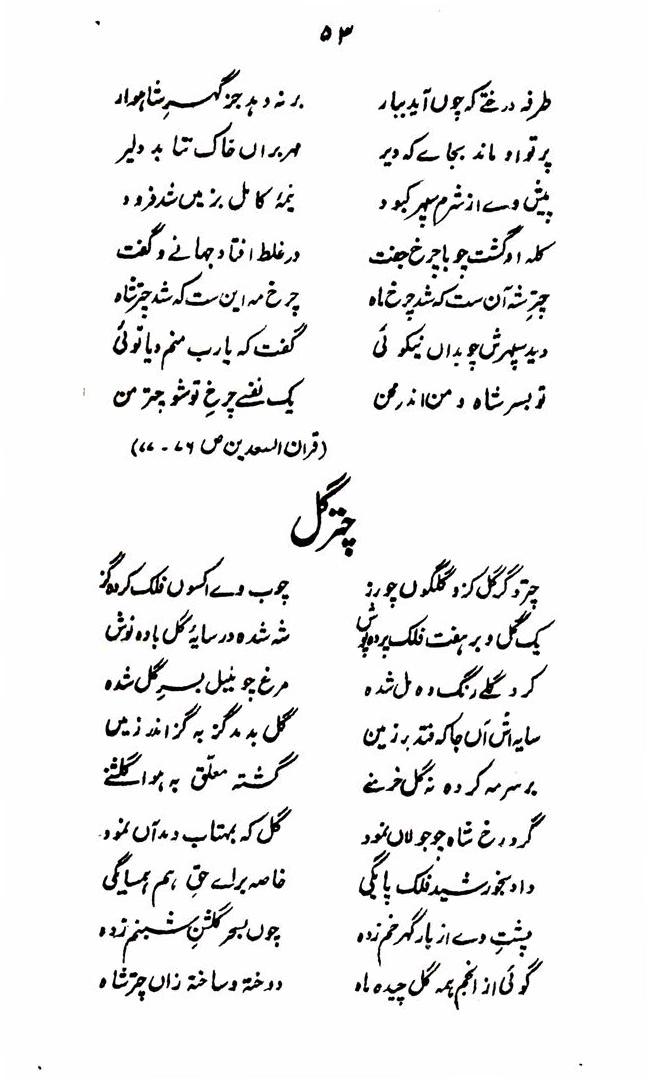 ۵۳
طرفہ درختے کہ چوں آید ببار بر نہ دہد جز گہرِ شاہوار
پرتو او ماند بجاے کہ دیر مہر براں خاک نتابد دلیر
پیش وے از شرم سپہر کبود نیمۂ کامل بزمیں شد فرود
کلہ او گشت چو با چرخ جفت در غلط افتاد جہانے و گفت
چتر شہ آن ست کہ شد چرخ ماہ چرخ مہ این ست کہ شد چتر شاہ
دید سپہرش چو بداں نیکوئی گفت کہ یارب منم و یا توئی
تو بسر شاہ و من اندر محن یک نفسے چرخِ تو شو چتر من
(قران السعدین ص ۷۶ - ۷۷)
چتر گل
چتر دگر گل کز و گلگوں چو رز چوب وے اکسوں فلک کردہ گز
یک گل و بر ہفت فلک پردہ پوش شہ شدہ در سایۂ گل بادہ نوش
کرد گلے رنگ دہ مل شدہ مرغ چو نیلی بسرِ گل شدہ
سایہ اش آں جا کہ فتد بر زمین گل بدمد گز بہ گز اندر زمیں
بر سر مہ کردہ ز گل خرمنے گشتہ معلّق بہ ہوا گلشنے
گرد رخ شاہ چو جولاں نمود گل کہ بمہتاب دمد آں نمود
داد بخورشید فلک پایگی خاصہ براے حقِ ہم سایگی
پشتِ وے از بار گہر خم زدہ چوں بسحر گلشنِ شبنم زدہ
گوئی از انجم ہمہ گل چیدہ ماہ دوختہ و ساختہ زاں چتر شاہ